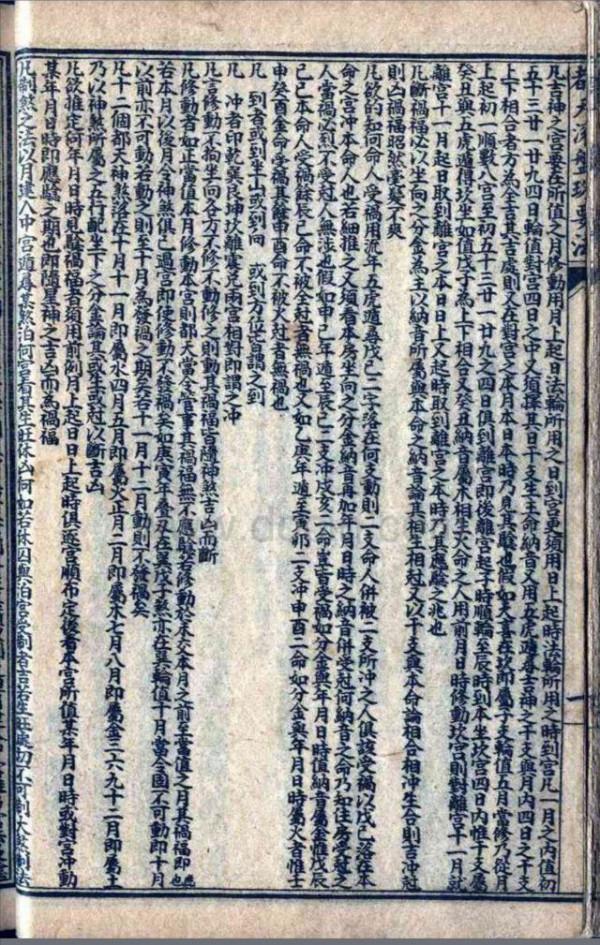 凡吉神之宮要在所值之月修動用月上起日法輪所用之日到宮更須用日上起時法輪所用之時到宮凡一月之內值初
五十三廿一廿九四日輪值對宮四日之中又須擇其日干支生主命納音又用五虎遁看吉神之干支與月內四日之干支
上下相合者方為全吉其吉處則又在對宮之本月本日本時乃見其驗也假如天喜在坎即屬子支輪值五月當修乃從月
上起初一順數八宮至初五十三廿一廿九之四日俱到離宮即後離宮起子時順輪至辰時到本坐坎宮四日內惟干支屬
癸丑與五虎遁得坎坐如值戊子為上下相合又癸丑納音屬木相生火命之人用前月日時修動坎宮則對離宮干一月就
離宮十一月起日取到離宮之本日日上又起時取到離宮之本時為其應驗之兆也
凡斷禍福必以坐向之分金為主以納音所屬與本命之納音論其相生相剋又以干支與本命論相合相沖生合則吉沖剋
則凶禍福昭然毫髮不爽
凡欲的知何命人受禍用流年五虎遁尋戊己二字落在何支動則二支命人併被二支所沖之人俱該受禍以戊己落在本
命之宮沖本命人也若細推之又須看本房坐向之分金納音再加年月日時之納音併受剋何納音之命乃如住房受剋之
人當禍必烈不受剋人無涉也假如甲己年遁至辰巳二支沖戌亥二命皆受禍如分金與年月日時值納音屬金惟戊辰
己巳本命人受禍餘辰巳命不被金剋者無禍也又如乙庚年遁至寅卯二支沖申酉二命如分金與年月日時屬火者惟壬
申癸酉金命受禍其餘申酉命不被火剋者無禍也
凡 到者或到坐山或到向 或到方位皆謂之到
凡 沖者印乾巽艮坤坎離震兌兩宮相對即謂之沖
凡言修動不拘坐向各方不修不動修之則動其禍福吉隨神煞吉凶而斷
凡修動者如正當值本月修動本宮則都天當令管事其禍福無不應驗若修動於未交本月之前至當值之月其禍福即應
若本月以後月令神煞俱已過宮即使修動不發禍矣如庚寅年疊刃在巽戊子煞亦在巽輪值十月當令固不可動即十月
以前亦不可動動之則至十月為發禍之期矣若十一月十二月動則不發禍矣
凡十二個都天神煞落在十月十一月即屬水四月五月即屬火正月二月即屬木七月八月即屬金三六九十二月即屬土
乃以神煞所屬之五行配坐下之分金論其或生或剋以斷吉凶
凡欲推定何年月日時見驗禍福者須用前例月上起日日上起時俱逐宮順布定後看本宮所值某年月日時或對宮沖動
某年月日時即應驗之期也即隨星神之吉凶而為禍福
凡制煞之法以月建入中宮遁尋某煞泊何宮看其生旺休囚何如若休囚與泊宮受制者吉若生旺處切不可制大煞制法